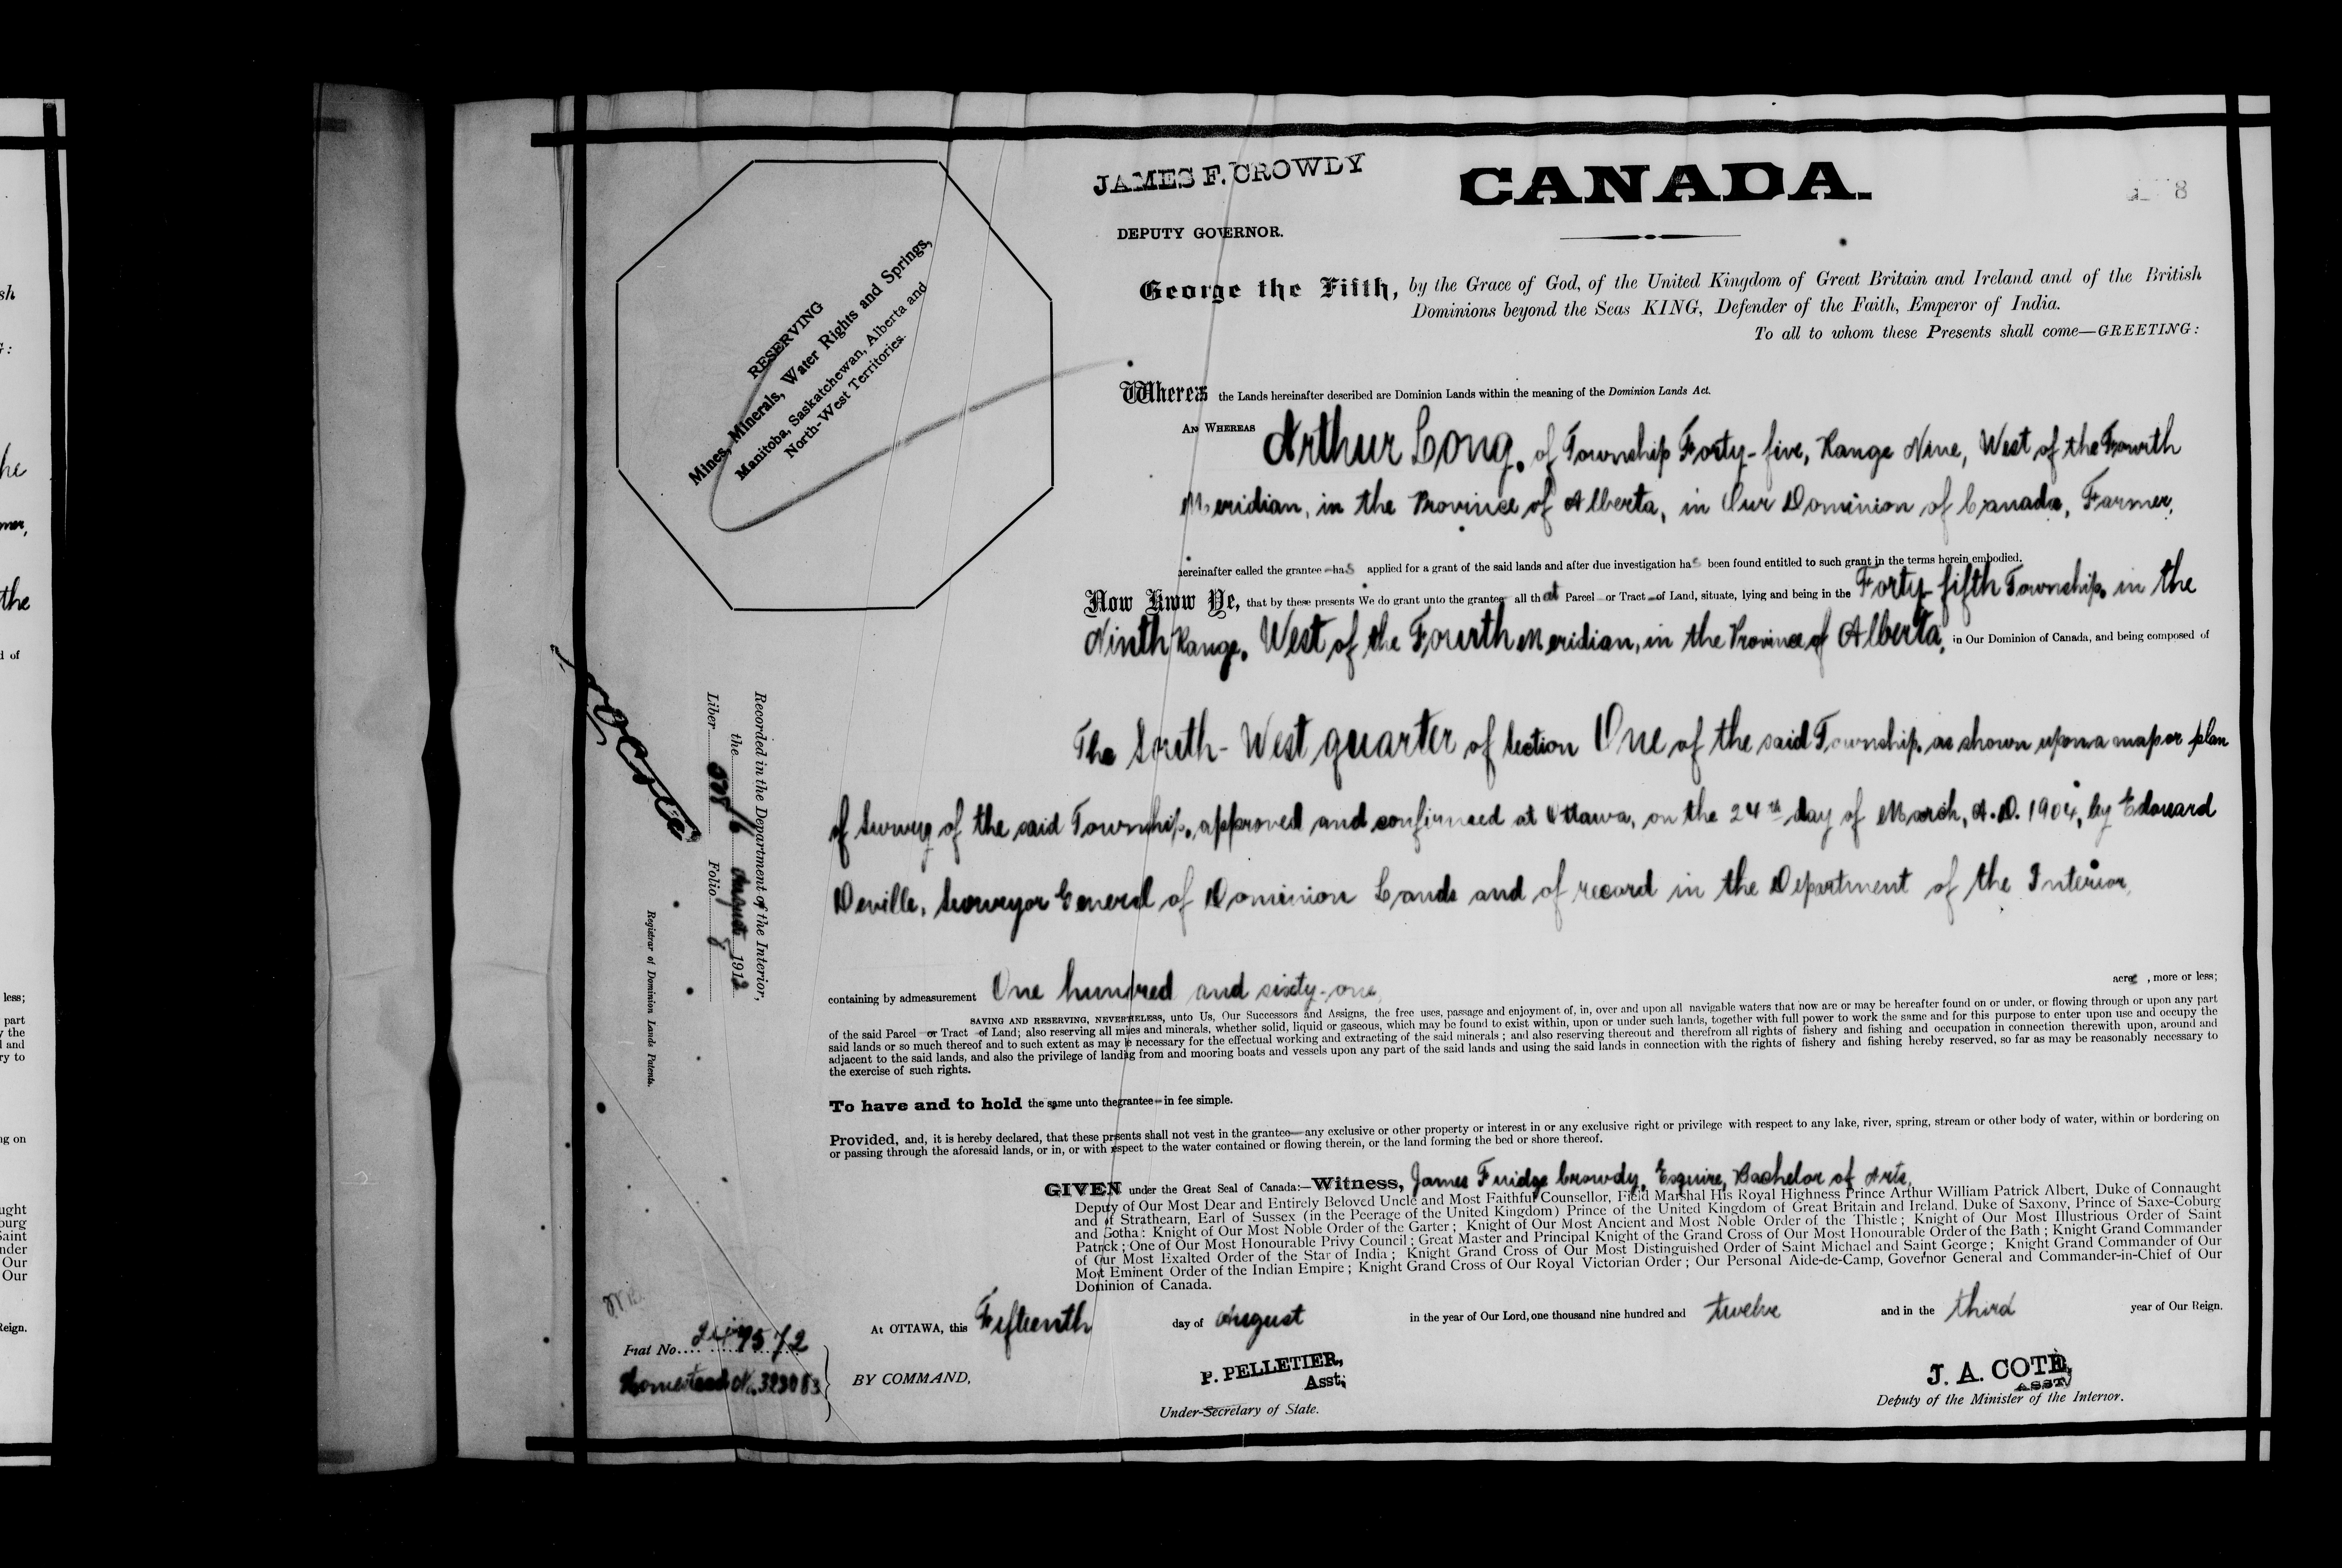 JAMES F. CROWDY
CANADA.
8
DEPUTY GOVERNOR.
George the Fifth, by the Grace of God, of the United Kingdom of Great Britain and Ireland and of the British
Dominions beyond the Seas KING, Defender of the Faith, Emperor of India.
To all to whom these Presents shall come—GREETING:
RESERVING
Mines, Minerals, Water Rights and Springs,
Manitoba, Saskatchewan, Alberta and
North-West Territories.
Whereas the Lands hereinafter described are Dominion Lands within the meaning of the Dominion Lands Act.
AN WHEREAS Arthur Long, of Township Forty-five, Range Nine, West of the Fourth
Meridian, in the Province of Alberta, in Our Dominion of Canada, Farmer,
hereinafter called the grantee has applied for a grant of the said lands and after due investigation has been found entitled to such grant in the terms herein embodied.
Now Know Ye, that by these presents We do grant unto the grantee all that Parcel or Tract of Land, situate, lying and being in the Forty-fifth Township, in the
Ninth Range, West of the Fourth Meridian, in the Province of Alberta, in Our Dominion of Canada, and being composed of
The South-West quarter of Section One of the said Township, as shown upon a map or plan
of Survey of the said Township, approved and confirmed at Ottawa, on the 24th day of March, A.D. 1904, by Edouard
Deville, Surveyor General of Dominion Lands and of record in the Department of the Interior,
containing by admeasurement One hundred and sixty-one acres, more or less;
SAVING AND RESERVING, NEVERTHELESS, unto Us, Our Successors and Assigns, the free uses, passage and enjoyment of, in, over and upon all navigable waters that now are or may be hereafter found on or under, or flowing through or upon any part
of the said Parcel or Tract of Land; also reserving all mines and minerals, whether solid, liquid or gaseous, which may be found to exist within, upon or under such lands, together with full power to work the same and for this purpose to enter upon use and occupy the
said lands or so much thereof and to such extent as may be necessary for the effectual working and extracting of the said minerals; and also reserving thereout and therefrom all rights of fishery and fishing and occupation in connection therewith upon, around and
adjacent to the said lands, and also the privilege of landing from and mooring boats and vessels upon any part of the said lands and using the said lands in connection with the rights of fishery and fishing hereby reserved, so far as may be reasonably necessary to
the exercise of such rights.
To have and to hold the same unto the grantee in fee simple.
Provided, and, it is hereby declared, that these presents shall not vest in the grantee any exclusive or other property or interest in or any exclusive right or privilege with respect to any lake, river, spring, stream or other body of water, within or bordering on
or passing through the aforesaid lands, or in, or with respect to the water contained or flowing therein, or the land forming the bed or shore thereof.
GIVEN under the Great Seal of Canada:—Witness, James Fuidge Crowdy, Esquire, Bachelor of Arts,
Deputy of Our Most Dear and Entirely Beloved Uncle and Most Faithful Counsellor, Field Marshal His Royal Highness Prince Arthur William Patrick Albert, Duke of Connaught
and of Strathearn, Earl of Sussex (in the Peerage of the United Kingdom) Prince of the United Kingdom of Great Britain and Ireland, Duke of Saxony, Prince of Saxe-Coburg
and Gotha: Knight of Our Most Noble Order of the Garter; Knight of Our Most Ancient and Most Noble Order of the Thistle; Knight of Our Most Illustrious Order of Saint
Patrick; One of Our Most Honourable Privy Council; Great Master and Principal Knight of the Grand Cross of Our Most Honourable Order of the Bath; Knight Grand Commander
of Our Most Exalted Order of the Star of India; Knight Grand Cross of Our Most Distinguished Order of Saint Michael and Saint George; Knight Grand Commander of Our
Most Eminent Order of the Indian Empire; Knight Grand Cross of Our Royal Victorian Order; Our Personal Aide-de-Camp, Governor General and Commander-in-Chief of Our
Dominion of Canada.
At OTTAWA, this Fifteenth day of August in the year of Our Lord, one thousand nine hundred and twelve and in the third year of Our Reign.
BY COMMAND,
P. PELLETIER,
Asst.
Under-Secretary of State.
J. A. COTÉ,
ASST
Deputy of the Minister of the Interior.
Recorded in the Department of the Interior,
the 16 August 1912
Liber Folio 8
Registrar of Dominion Lands Patents.
Fiat No.
Homestead No. 323083